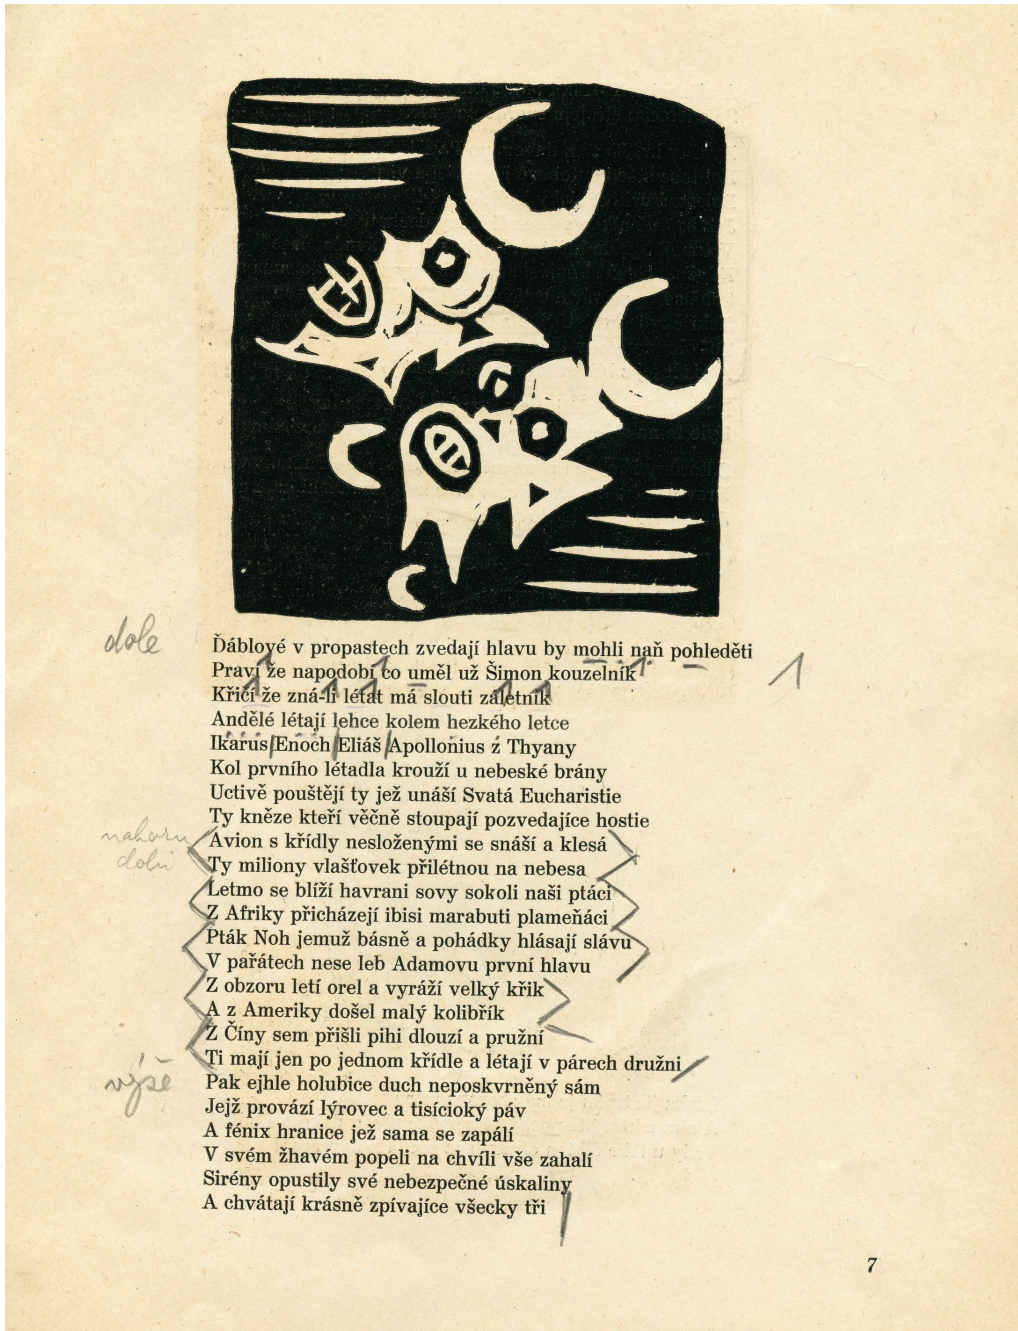 dole
Ďáblové v propastech zvedají hlavu by mohli naň pohleděti
Praví že napodobí co uměl už Šimon kouzelník
Křičí že zná-li létat má slouti záletník
Andělé létají lehce kolem hezkého letce
Ikarus Enoch Eliáš Apollonius z Thyany
Kol prvního létadla krouží u nebeské brány
Uctivě pouštějí ty jež unáší Svatá Eucharistie
Ty kněze kteří věčně stoupají pozvedajíce hostie
nahoru
dolů
Avion s křídly nesloženými se snáší a klesá
Ty miliony vlašťovek přilétnou na nebesa
Letmo se blíží havrani sovy sokoli naši ptáci
Z Afriky přicházejí ibisi marabuti plameňáci
Pták Noh jemuž básně a pohádky hlásají slávu
V pařátech nese leb Adamovu první hlavu
Z obzoru letí orel a vyráží velký křik
A z Ameriky došel malý kolibřík
Z Číny sem přišli pihi dlouzí a pružní
Ti mají jen po jednom křídle a létají v párech družni
výše
Pak ejhle holubice duch neposkvrněný sám
Jejž provází lýrovec a tisícioký páv
A fénix hranice jež sama se zapálí
V svém žhavém popeli na chvíli vše zahalí
Sirény opustily své nebezpečné úskaliny
A chvátají krásně zpívajíce všecky tři
7